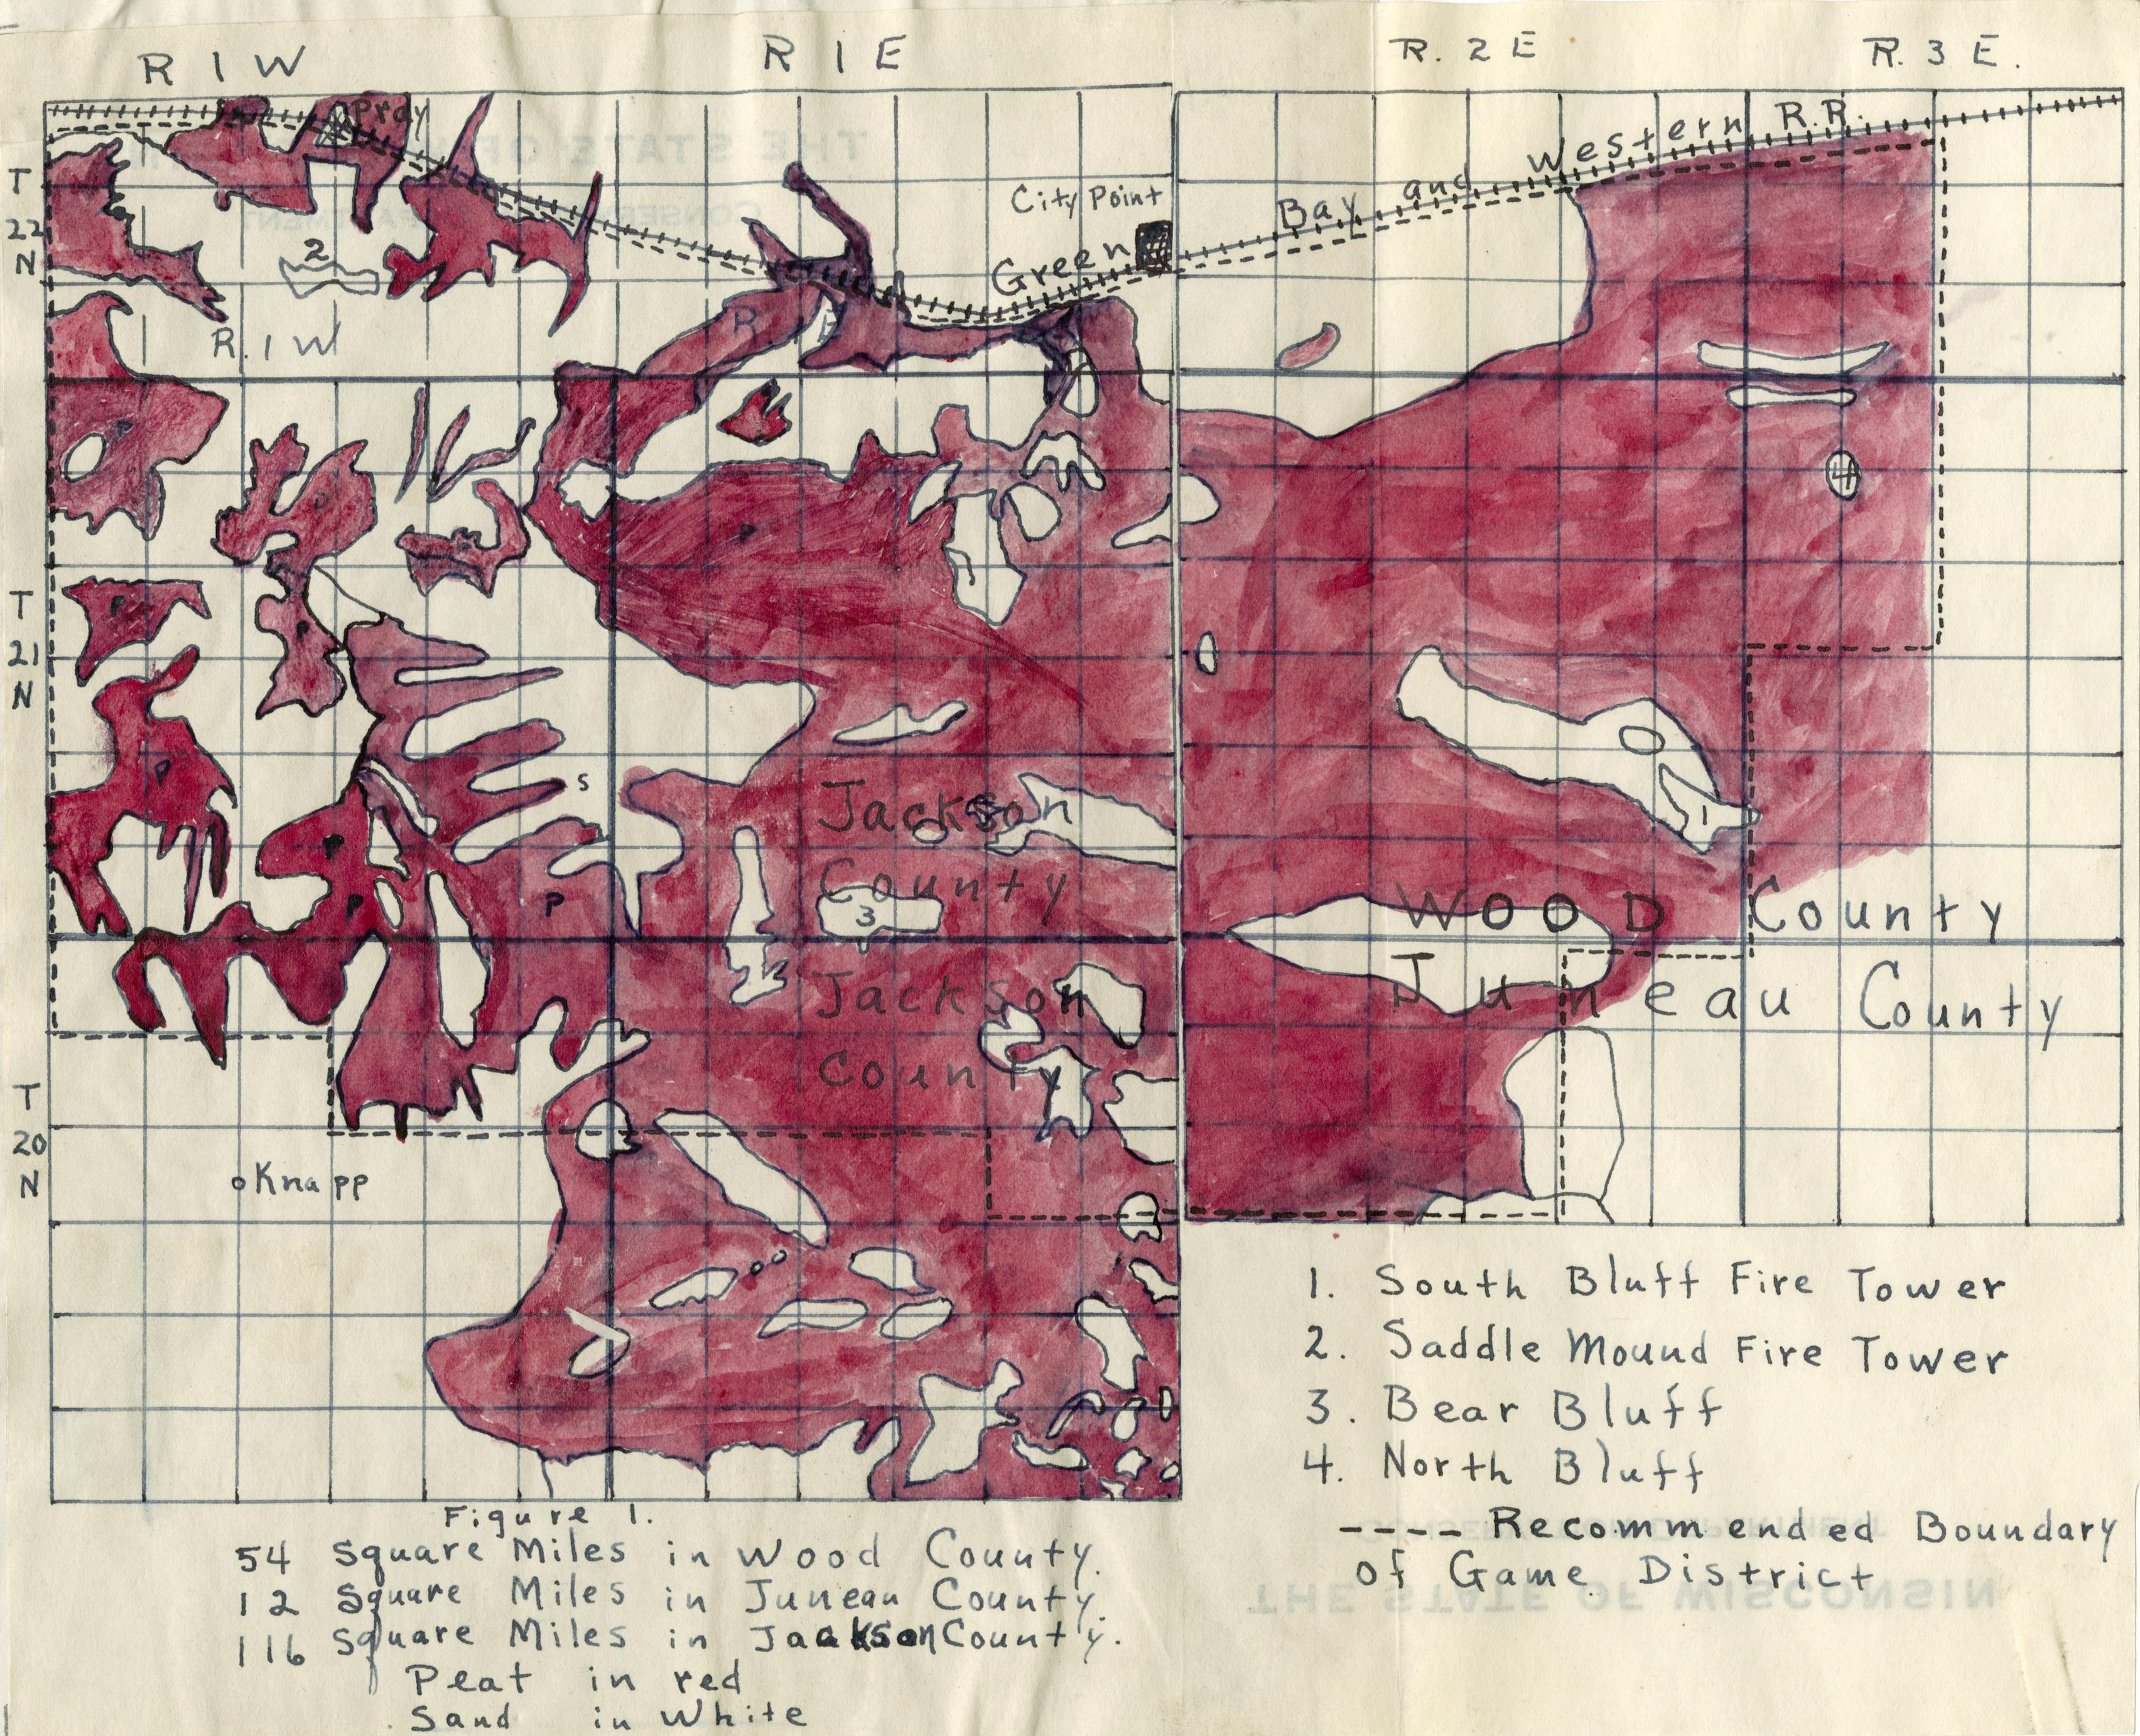 R 1 W
R 1 E
R. 2 E
R. 3 E.
Pray
Green Bay and Western R.R.
City Point
T
22
N
2
R. 1 W
R E
4
P
P
P
P
T
21
N
P
P
P
P
P
S
1
Jackson
County
3
Wood County
Juneau County
Jackson
County
T
20
N
Knapp
1. South Bluff Fire Tower
2. Saddle Mound Fire Tower
3. Bear Bluff
4. North Bluff
---- Recommended Boundary
of Game District
Figure 1.
54 Square Miles in Wood County.
12 Square Miles in Juneau County.
116 Square Miles in Jackson County.
Peat in red
Sand in White
THE STATE OF WISCONSIN
CONSERVATION DEPARTMENT